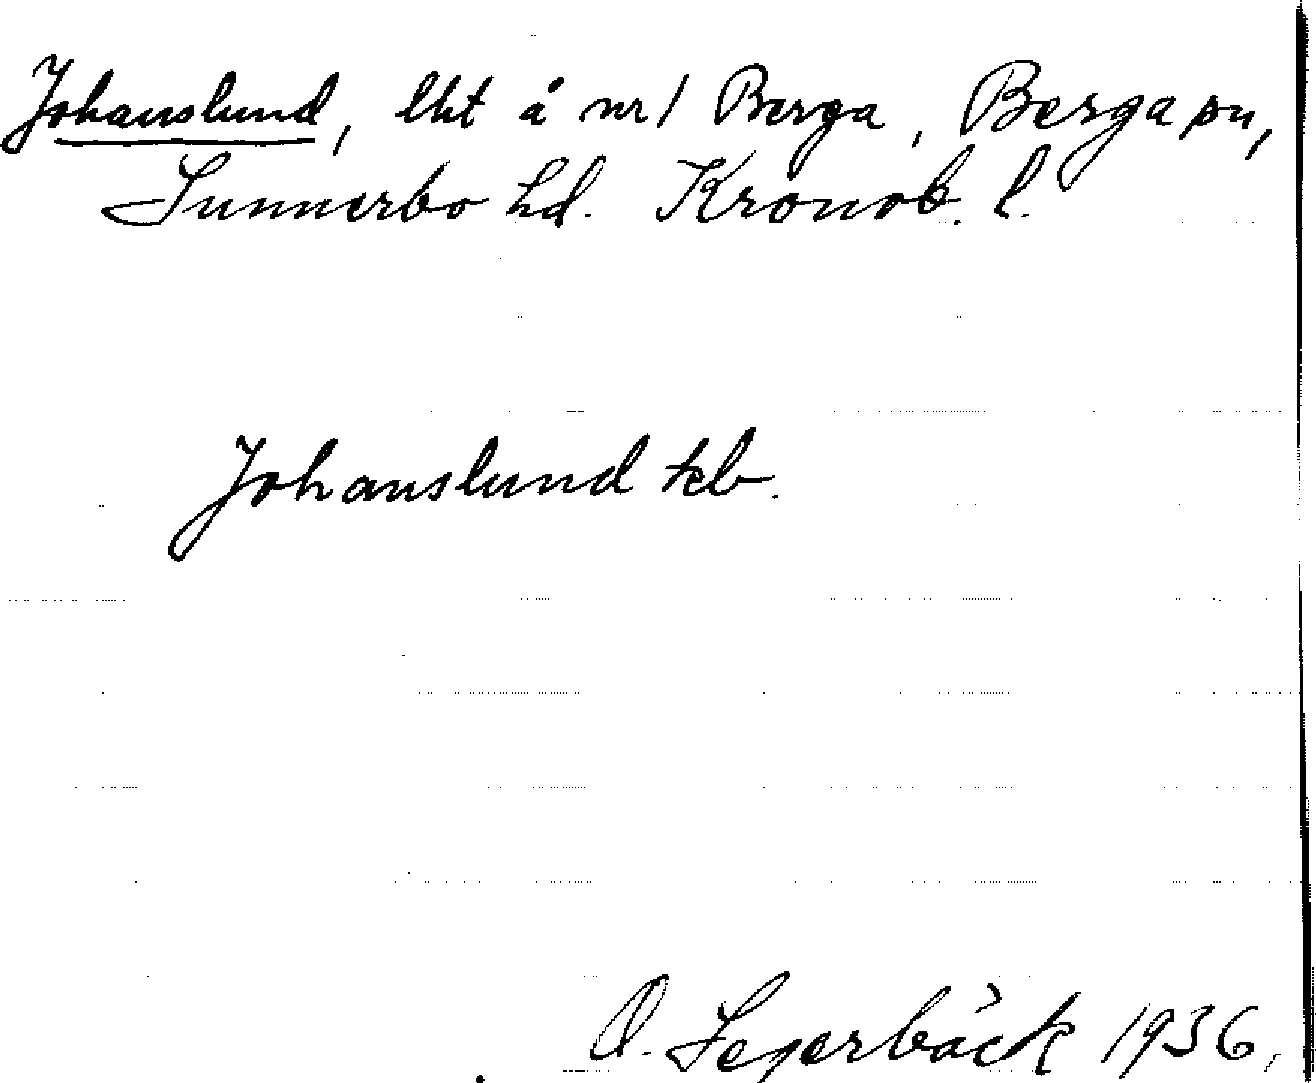 Johanslund, lht å nr 1 Berga, Berga sn,
Sunnerbo hd. Kronob. l.
Johanslund teb.
O. Segerbäck 1936.